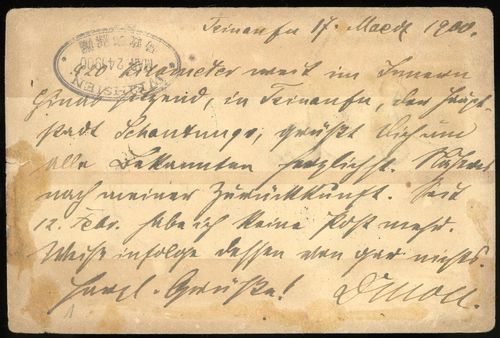 Tsinanfu 17. Maerz 1900.
420 Kilometer weit im Innern
Chinas sitzend, in Tsinanfu, der Haupt-
stadt Schantungs, grüßt Dich und
alle Bekannten herzlichst. Näheres
nach meiner Zurückkunft. Seit
12. Febr. habe ich keine Post mehr.
Weiß infolge dessen von gar nichts.
Herzl. Grüße!
WEIHSIEN
MAR 24 1900